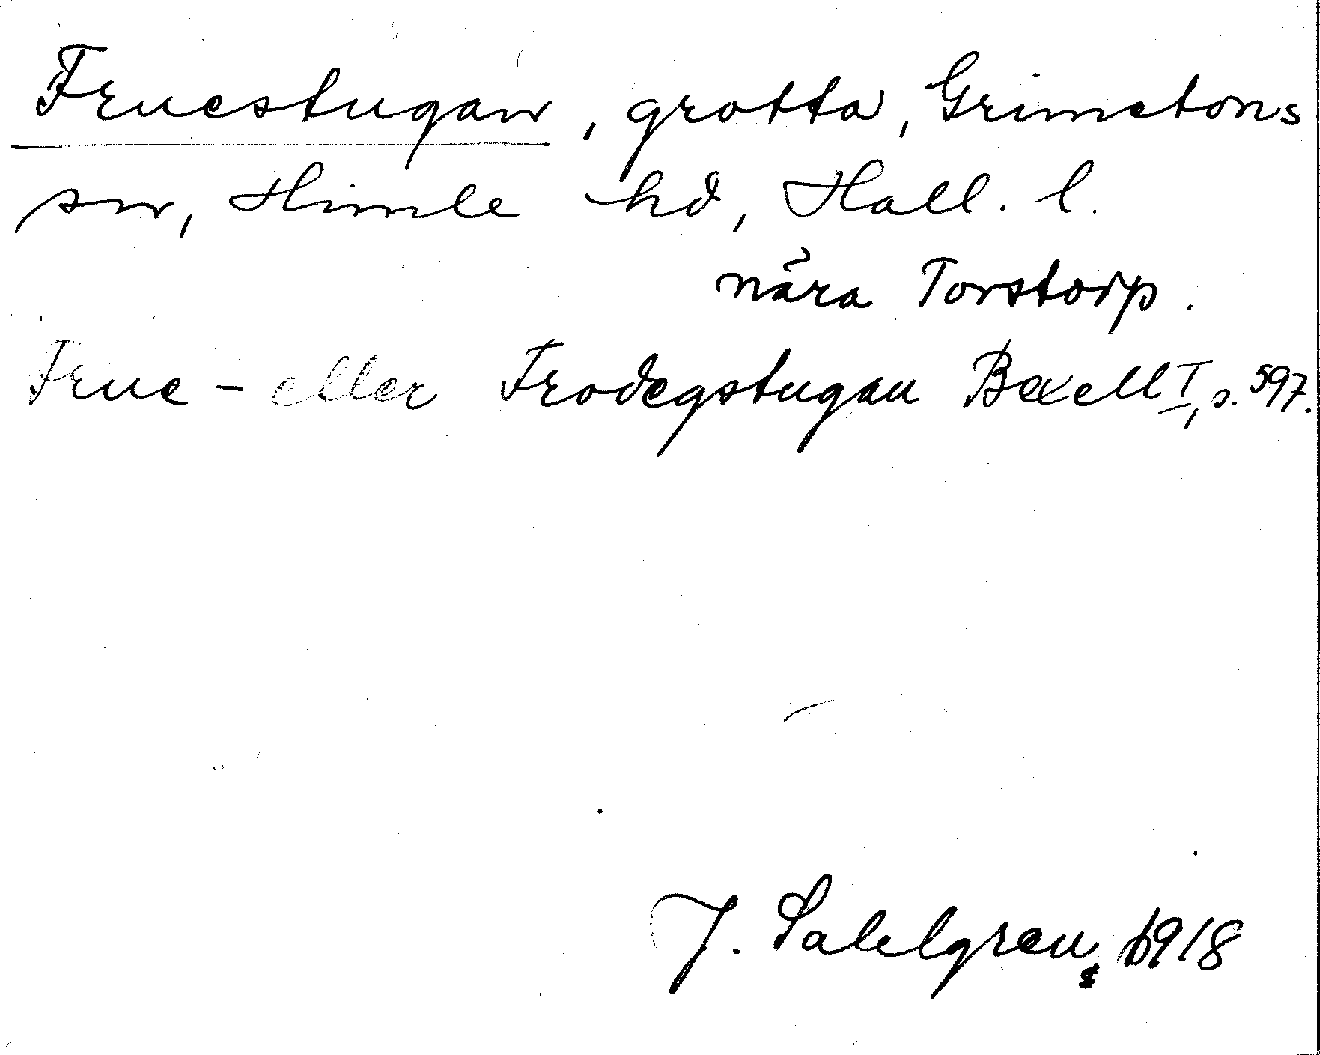 Fruestugan, grotta, Grimetons
sn, Himle hd, Hall. l.
nära Torstorp.
Frue- eller Frodegstugan Bexell I, s. 597.
J. Sahlgren, 1918